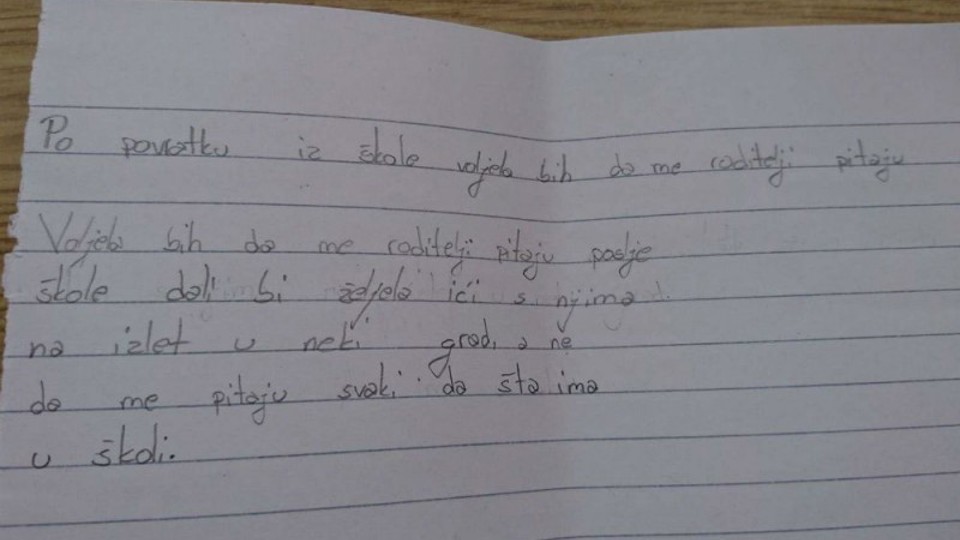 Po povratku iz škole voljela bih da me roditelji pitaju
Voljela bih da me roditelji pitaju poslje
škole dali bi željela ići s njima
na izlet u neki grad, a ne
da me pitaju svaki da šta ima
u školi.